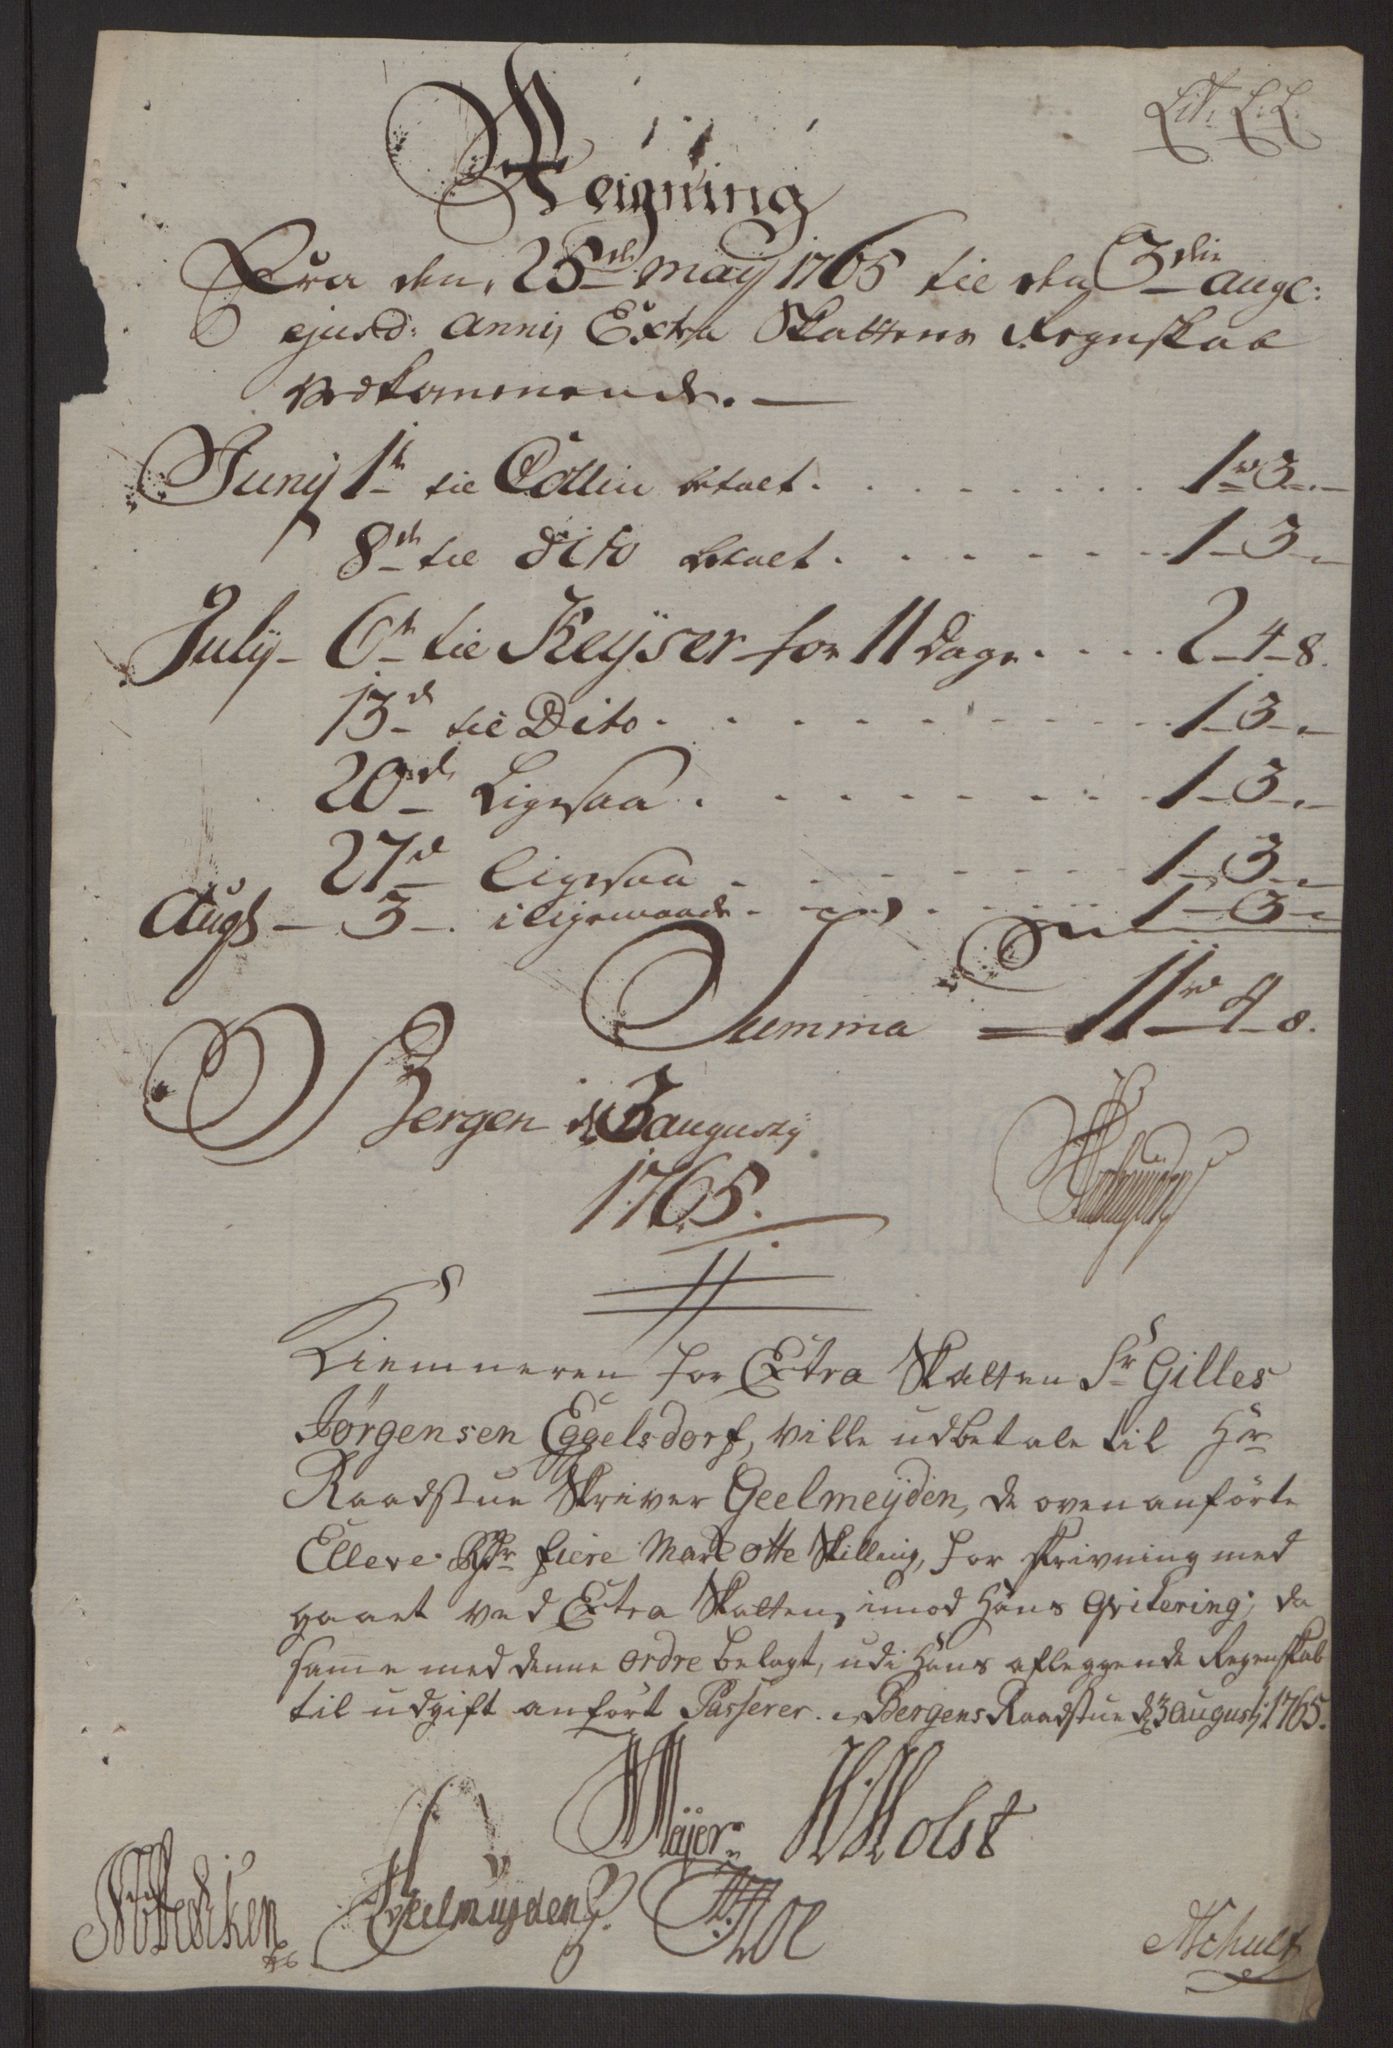 Lit. L.L.
Reigning
Fra den 25de may 1765 til den 3die augt:
ejusd: anni, Extra Skattens Regnskab
vedkommende. —
Juny 1te til Collin betalt . . . . . . . . 1rd 3 „ —
8de til dito betalt . . . . . . . 1 – 3 – „
July – 6te til Keyser for 11 dage . . . . . 2 – 4 – 8.
13de til Dito . . . . . . . . . 1 – 3 – „ –
20de Ligesaa . . . . . . . . 1 – 3 – „ –
27de Ligesaa . . . . . . . . 1 – 3 – „ –
Augt – 3 – . i ligemaade . . . . . . 1 – 3 – „
Summa — 11rd 4 – 8.
Bergen d 3 augusty
1765.
Kiemneren for Extra Skatten Sr Gilles
Jørgensen Eggelsdorf, ville udbetale til Hr
Raadstue Skriver Geelmeyden, de ovenanførte
Elleve Rdr fiere Mark otte Skilling, for skrivning med
gaaet ved Extra Skatten, imod Hans Qvitering; da
samme med denne ordre belagt, udi Hans afleggende Regenskab
til udgift anført Passerer. Bergens Raadstue d 3 Augusti 1765.
Meyer HHolst
Fredriken Geelmuyden
Schultz